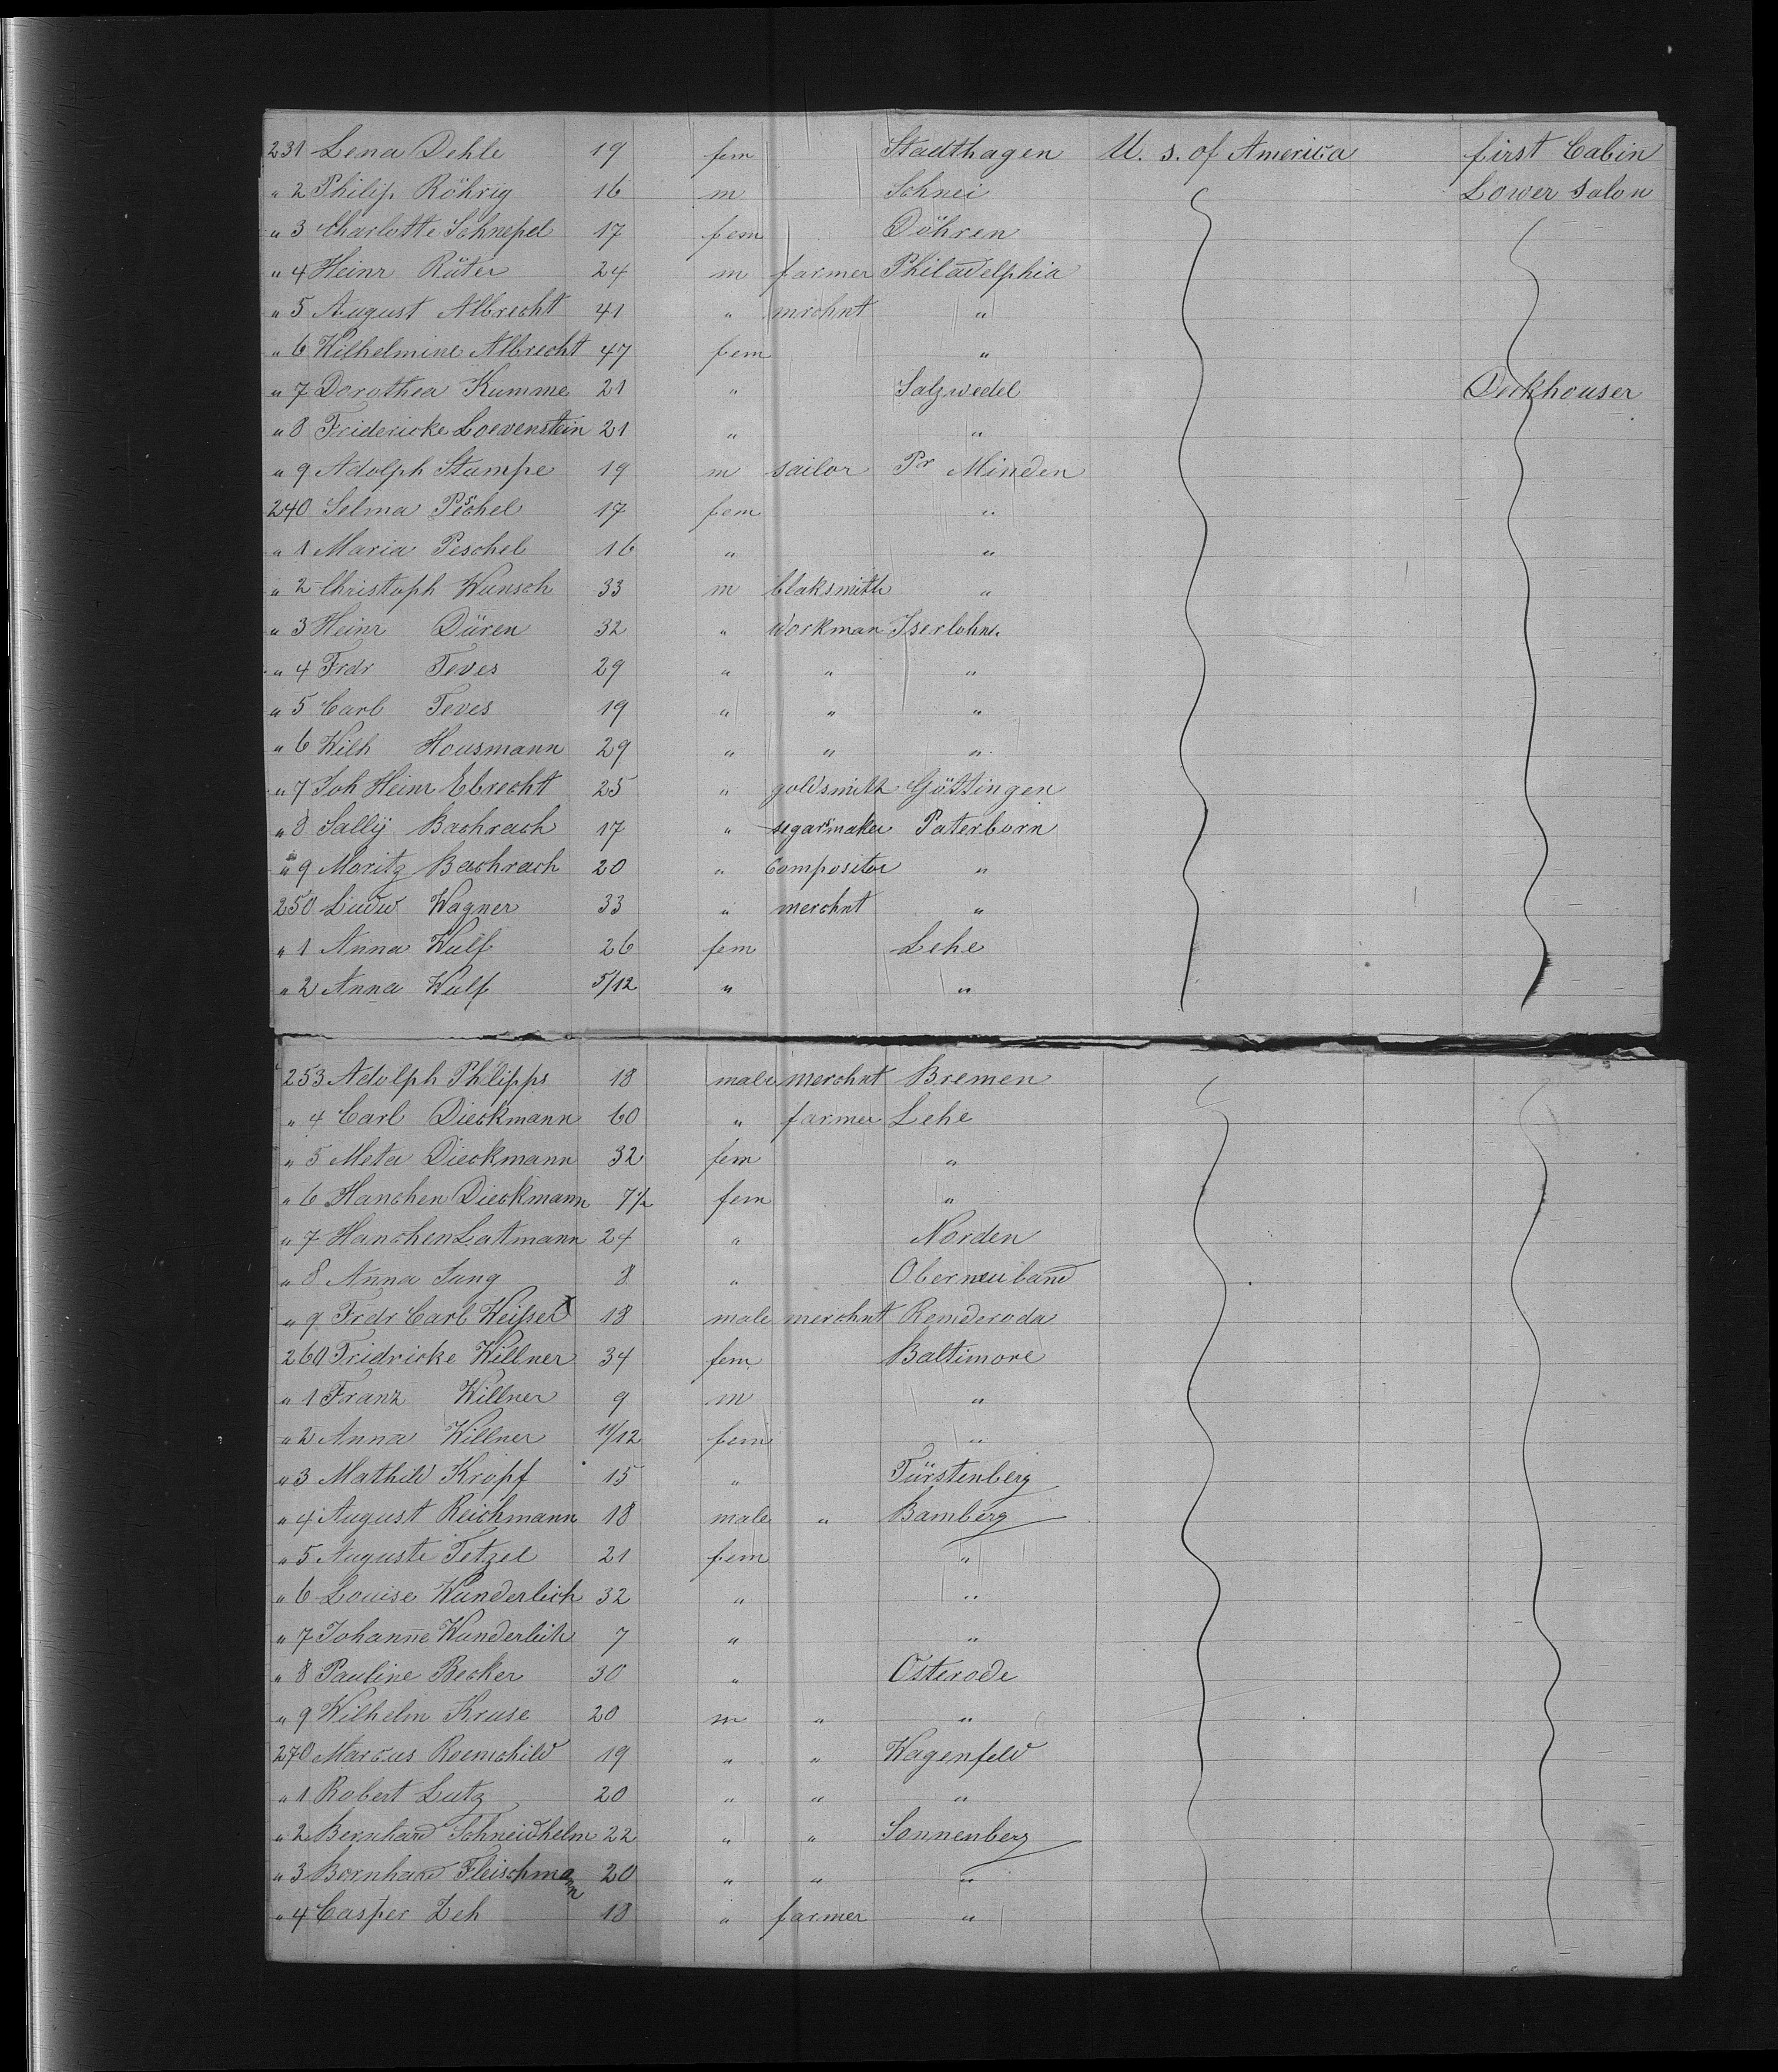 231 Lena Dehle 19 fem Stadthagen U. S. of America first Cabin
" 2 Philip Röhrig 16 m Schnei Lower Salon
" 3 Charlotte Schnepel 17 fem Döhren
" 4 Heinr Rüter 24 m farmer Philadelphia
" 5 August Albrecht 41 " mrchnt "
" 6 Wilhelmine Albrecht 47 fem "
" 7 Dorothea Kumme 21 " Salzwedel Deckhouser
" 8 Fridericke Loevenstein 21 " "
" 9 Adolph Stumpe 19 m sailor Pr Minden
240 Selma Peschel 17 fem "
" 1 Maria Peschel 16 " "
" 2 Christoph Wunsch 33 m blaksmith "
" 3 Heinr Düren 32 " workman Iserlohn
" 4 Frdr Teves 29 " " "
" 5 Carl Teves 19 " " "
" 6 Wilh Housmann 29 " " "
" 7 Joh Heinr Ebrecht 25 " goldsmith Göttingen
" 8 Sally Bachrach 17 " segarsmaker Paterborn
" 9 Moritz Bachrach 20 " compositor "
250 Ludw Wagner 33 " merchnt "
" 1 Anna Wulf 26 fem Lehe
" 2 Anna Wulf 5/12 " "
253 Adolph Philipps 18 male merchnt Bremen
" 4 Carl Dieckmann 60 " farmer Lehe
" 5 Meta Dieckmann 32 fem "
" 6 Hanchen Dieckmann 7 1/2 fem "
" 7 Hanchen Latmann 24 " Norden
" 8 Anna Jung 8 " Oberneuland
" 9 Frdr Carl Weisser 18 male merchnt Remderoda
260 Fridricke Willner 34 fem Baltimore
" 1 Franz Willner 9 m "
" 2 Anna Willner 11/12 fem "
" 3 Mathild Kropf 15 " Fürstenberg
" 4 August Reichmann 18 male " Bamberg
" 5 Auguste Tetzel 21 fem "
" 6 Louise Wunderlich 32 " "
" 7 Johanne Wunderlich 7 " "
" 8 Pauline Becker 30 " Osterode
" 9 Wilhelm Kruse 20 m " "
270 Marcus Roemchild 19 " " Wagenfeld
" 1 Robert Lutz 20 " " "
" 2 Bernhard Schneidhelm 22 " " Sonnenberg
" 3 Bernhard Fleischmann 20 " " "
" 4 Casper Zeh 18 " farmer "